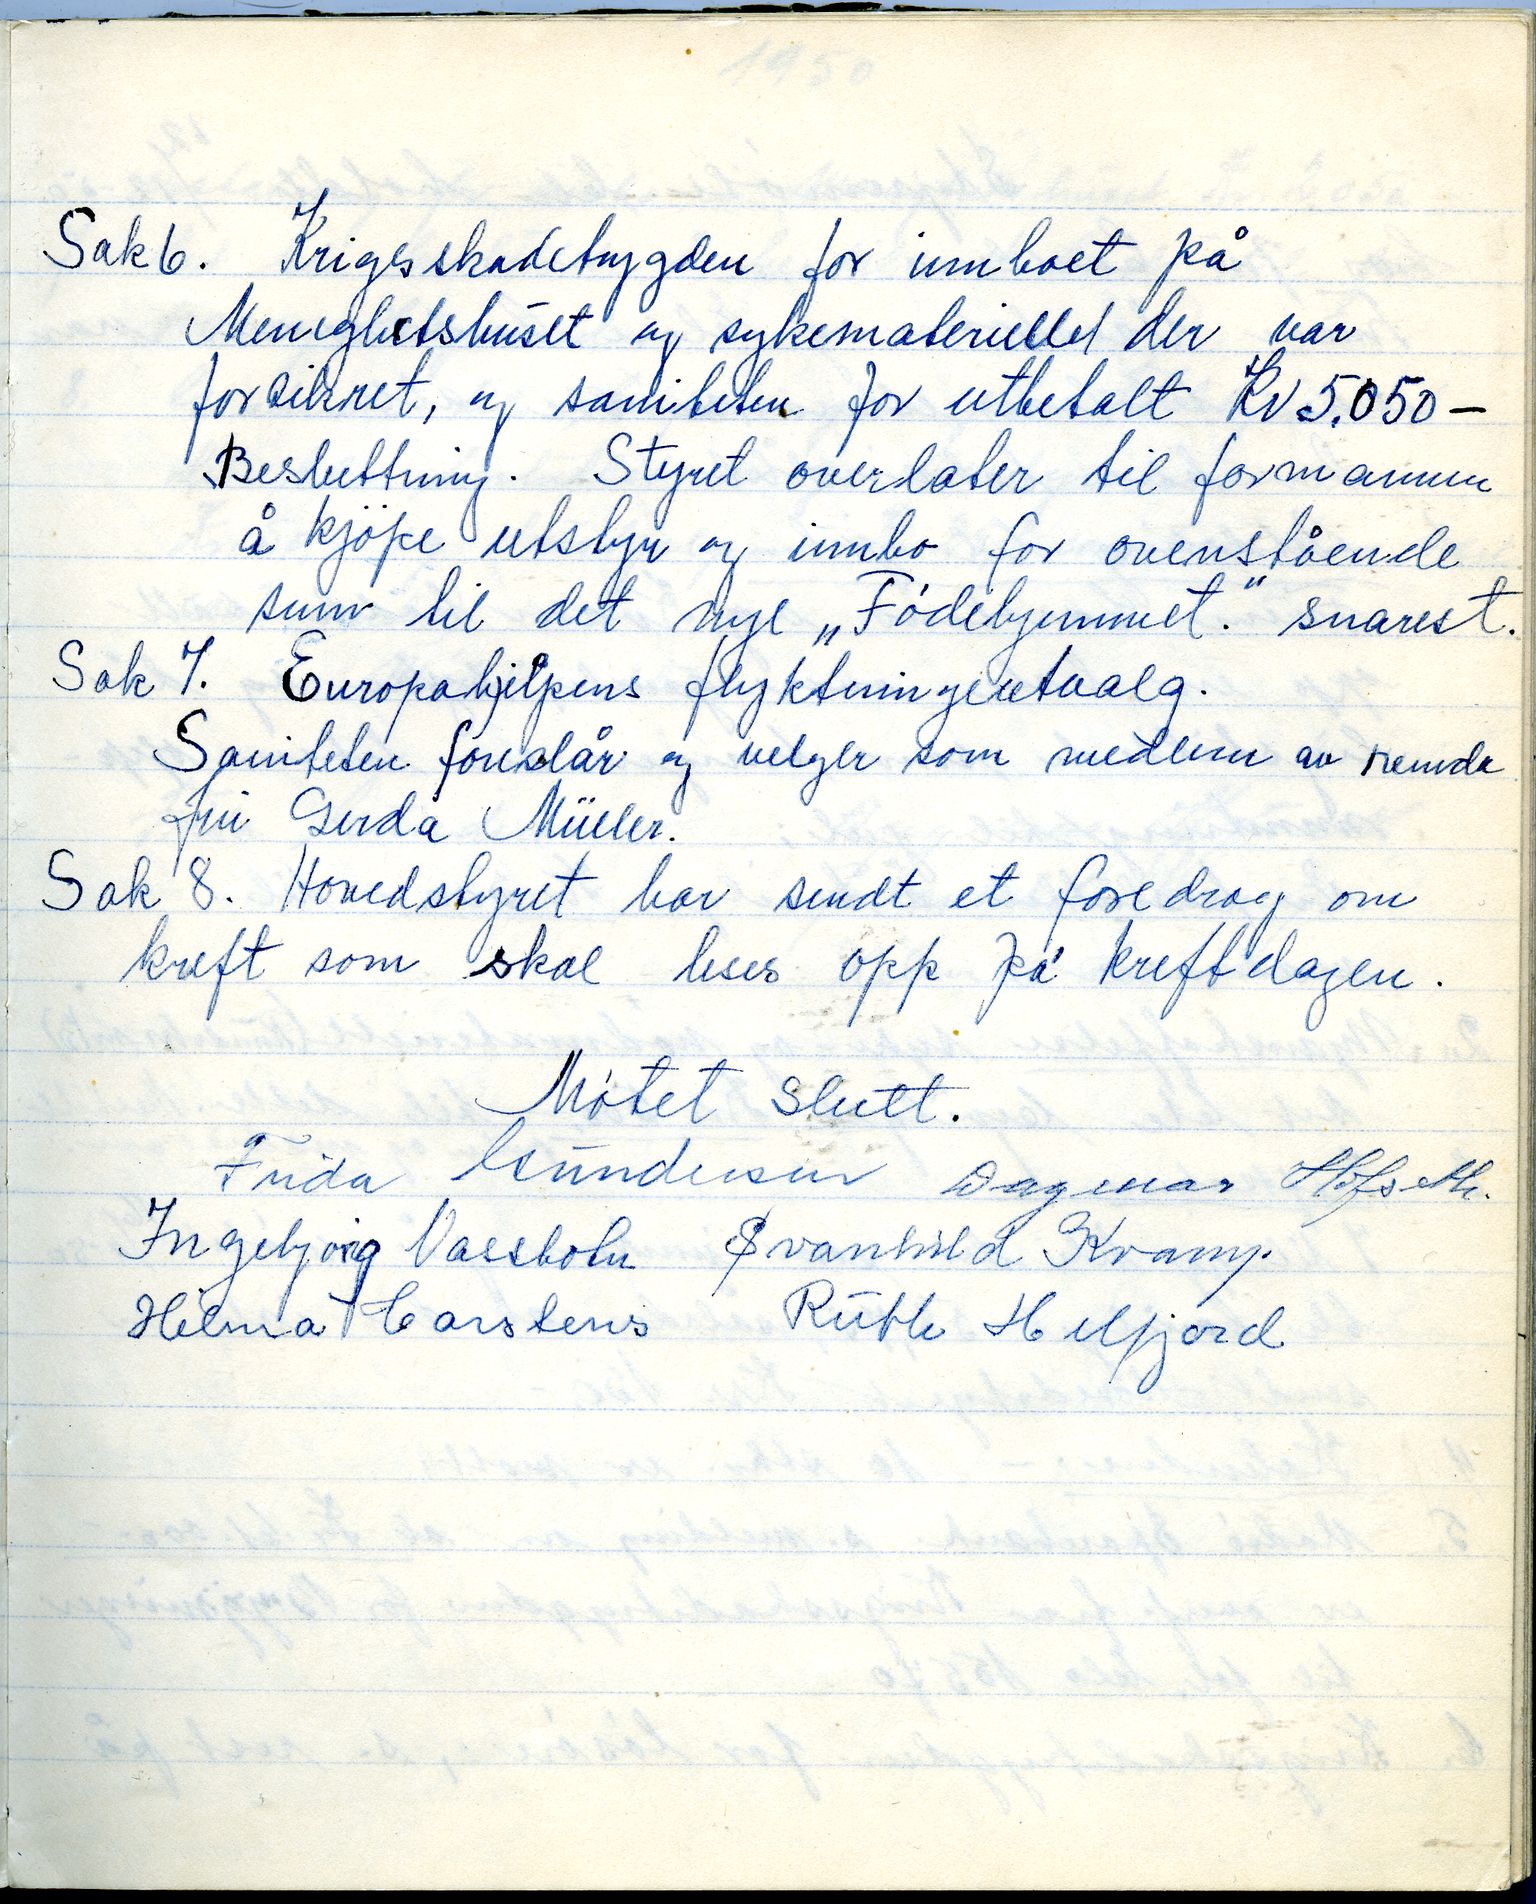 Sak 6. Krigsskadetrygden for innboet på
Menighetshuset og sykemateriellet der var
forsikret, og saniteten for utbetalt Kr 5.050 –
Beslutning. Styret overlater til formannen
å kjöpe utstyr og innbo for ovenstående
sum til det nye „Födehjemmet." snarest.
Sak 7. Europahjelpens flyktningeutvalg.
Saniteten foreslår og velger som medlem av nemda
fru Gerda Müller.
Sak 8. Hovedstyret har sendt et foredrag om
kreft som skal leses opp på kreftdagen.
Mötet slutt.
Frida Gundersen Dagmar Hofseth.
Ingebjørg Vassbotn Svanhild Kvamp.
Hilma Carstens Ruth Helfjord